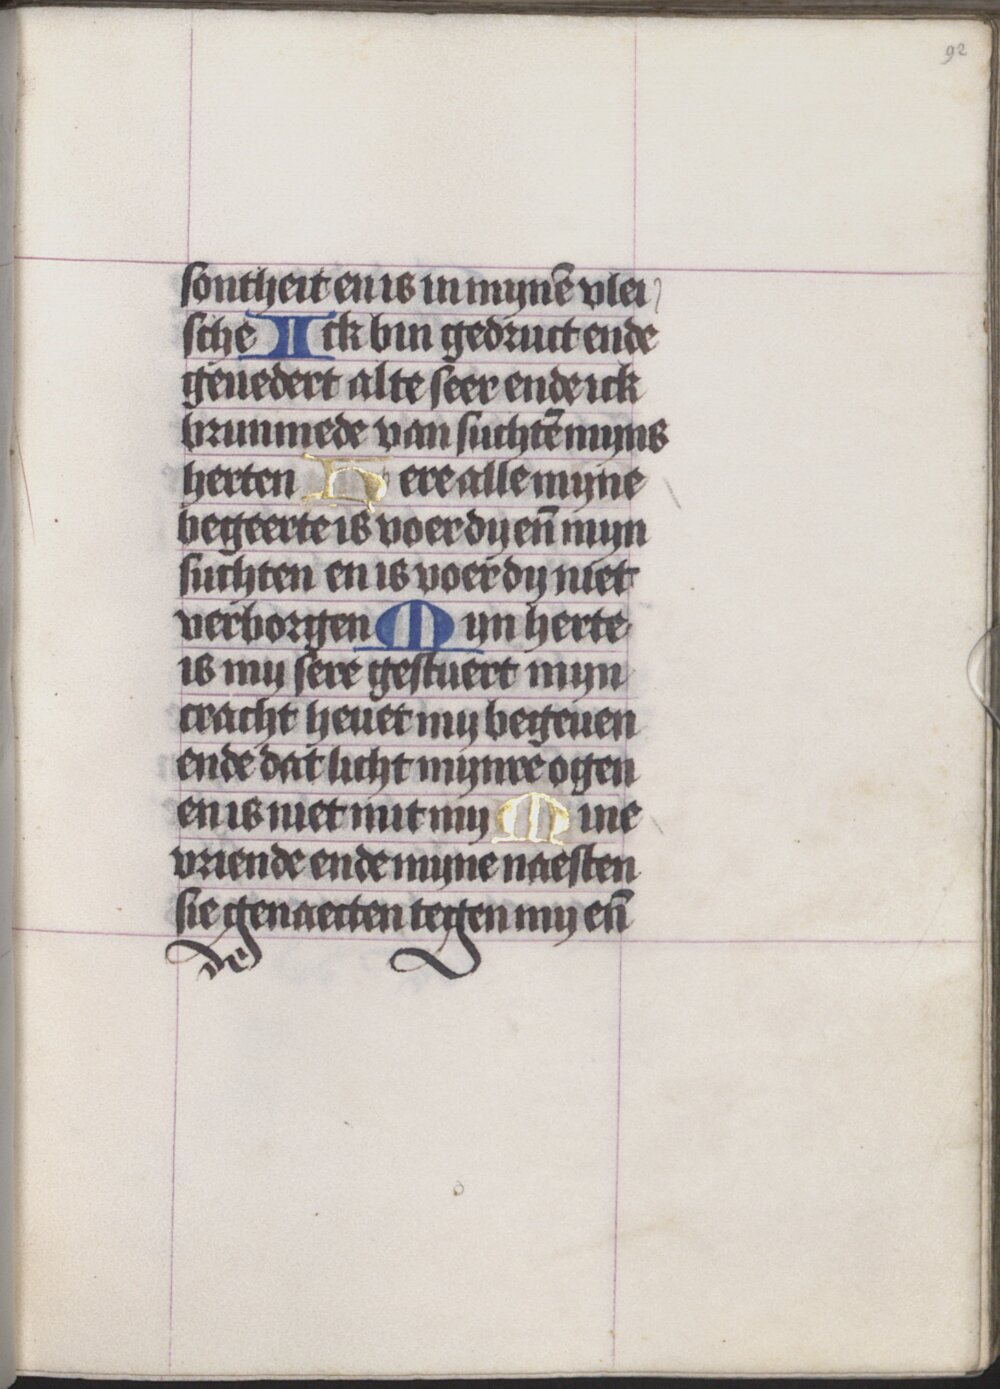 92
sontheit en is in mynē vlei
sche Ick bin gedruct ende
geuedert al te seer ende ick
brunmede van suchtē myns
herten Here alle myne
begeerte is voer dy eñ myn
suchten en is voer dy niet
verborgen Myn herte
is my sere gestuert myn
cracht heuet my begeuen
ende dat licht mynre ogen
en is niet mit my Mine
vriende ende myne naesten
sie genaecten tegen my eñ